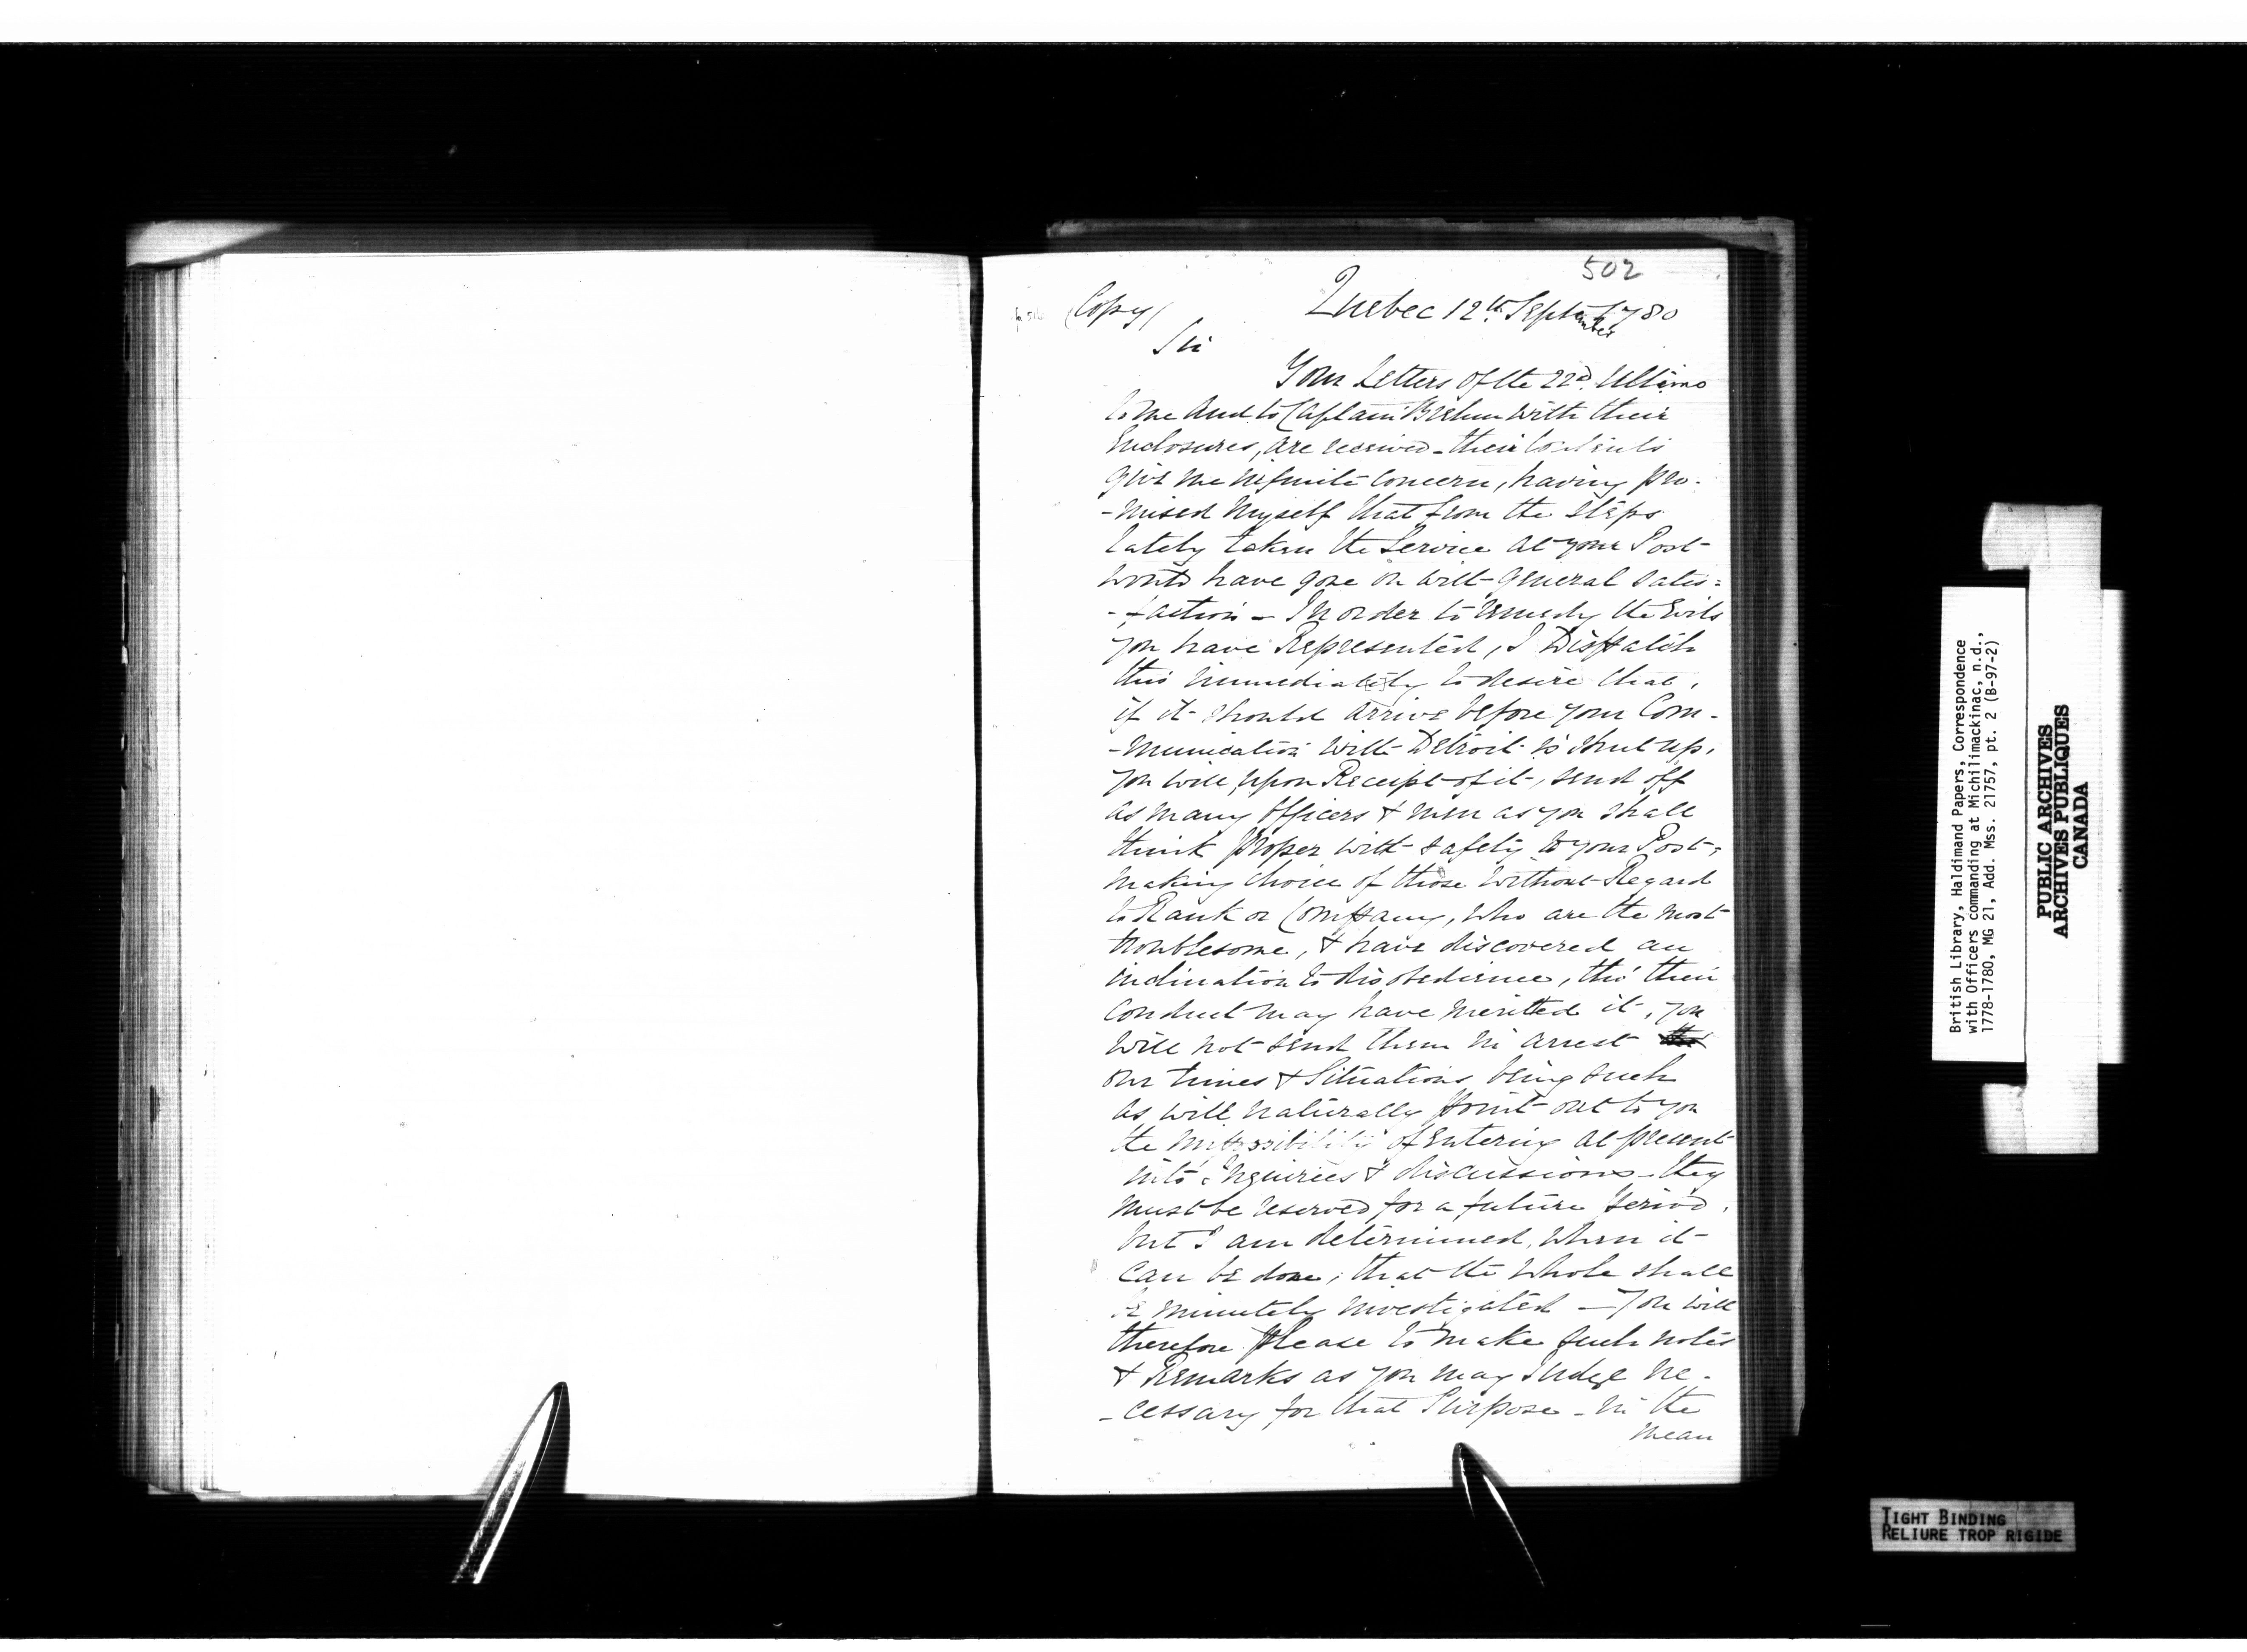 502
(Copy/
Quebec 12th. September 1780
Sir
Your Letters of the 22d. Ultimo
to me and to Captain Brehm with their
Enclosures, are received - their Contents
give me infinite Concern, having pro-
-mised Myself that from the Steps
lately taken the Service at your Post
would have gone on with general satis=
-faction - In order to remedy the Evils
you have Represented, I Disspatch
this immediately to desire that,
if it should arrive before your Com-
-munication with Detroit is shut up,
you will, upon Receipt of it, send off
as many Officers & men as you shall
think proper with safety to your Post,
making choice of those without Regard
to Rank or Company, who are the most
troublesome, & have discovered an
inclination to disobedience, tho' their
conduct may have merited it, you
will not send them in arrest
our times & Situations being such
as will naturally point out to you
the impossibility of entering at present
into Enquiries & discussions - they
must be reserved for a future Period,
but I am determined, when it
can be done, that the Whole shall
be minutely investigated - You will
therefore please to make such notes
& Remarks as you may Judge ne-
-cessary for that Purpose - in the
mean
British Library, Haldimand Papers, Correspondence
with Officers commanding at Michilimackinac, n.d.,
1778-1780, MG 21, Add. Mss. 21757, pt. 2 (B-97-2)
PUBLIC ARCHIVES
ARCHIVES PUBLIQUES
CANADA
TIGHT BINDING
RELIURE TROP RIGIDE